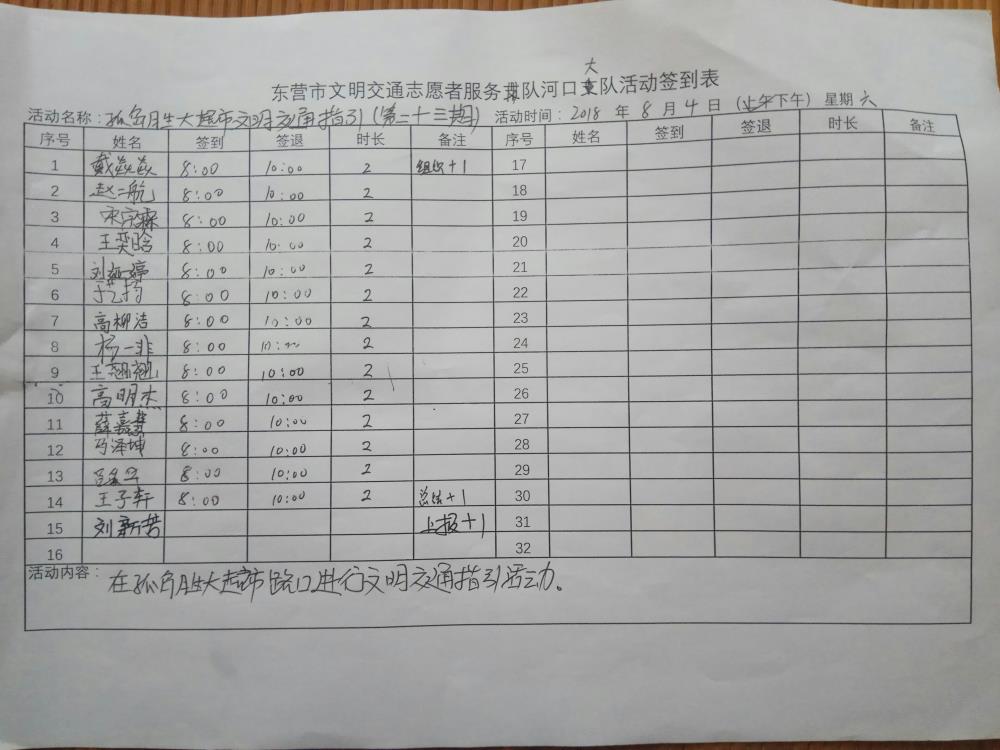 东营市文明交通志愿者服务队河口大队活动签到表
活动名称：孤岛胜大超市文明交通指引(第二十三期) 活动时间：2018 年 8 月 4 日 (上午下午) 星期 六
序号 姓名 签到 签退 时长 备注 序号 姓名 签到 签退 时长 备注
1 戴焱焱 8:00 10:00 2 组织+1 17
2 赵一航 8:00 10:00 2 18
3 8:00 10:00 2 19
4 王奕晗 8:00 10:00 2 20
5 刘婷 8:00 10:00 2 21
6 8:00 10:00 2 22
7 高柳洁 8:00 10:00 2 23
8 杨一非 8:00 10:00 2 24
9 王翘翘 8:00 10:00 2 25
10 高明杰 8:00 10:00 2 26
11 薛嘉慧 8:00 10:00 2 27
12 马泽坤 8:00 10:00 2 28
13 8:00 10:00 2 29
14 王子轩 8:00 10:00 2 总结+1 30
15 刘新哲 上报+1 31
16 32
活动内容： 在孤岛胜大超市路口进行文明交通指引活动。